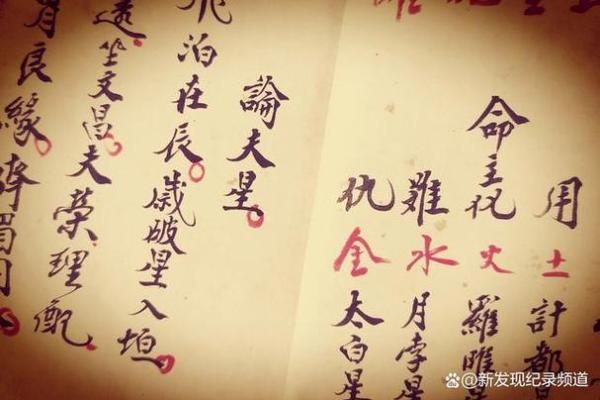 用土計都
命主火羅睺
難水月孛星
仇金太白星
論夫星。
泊在辰。歲破星入垣。
坐文昌。夫榮理配
良緣。
@新发现纪录频道